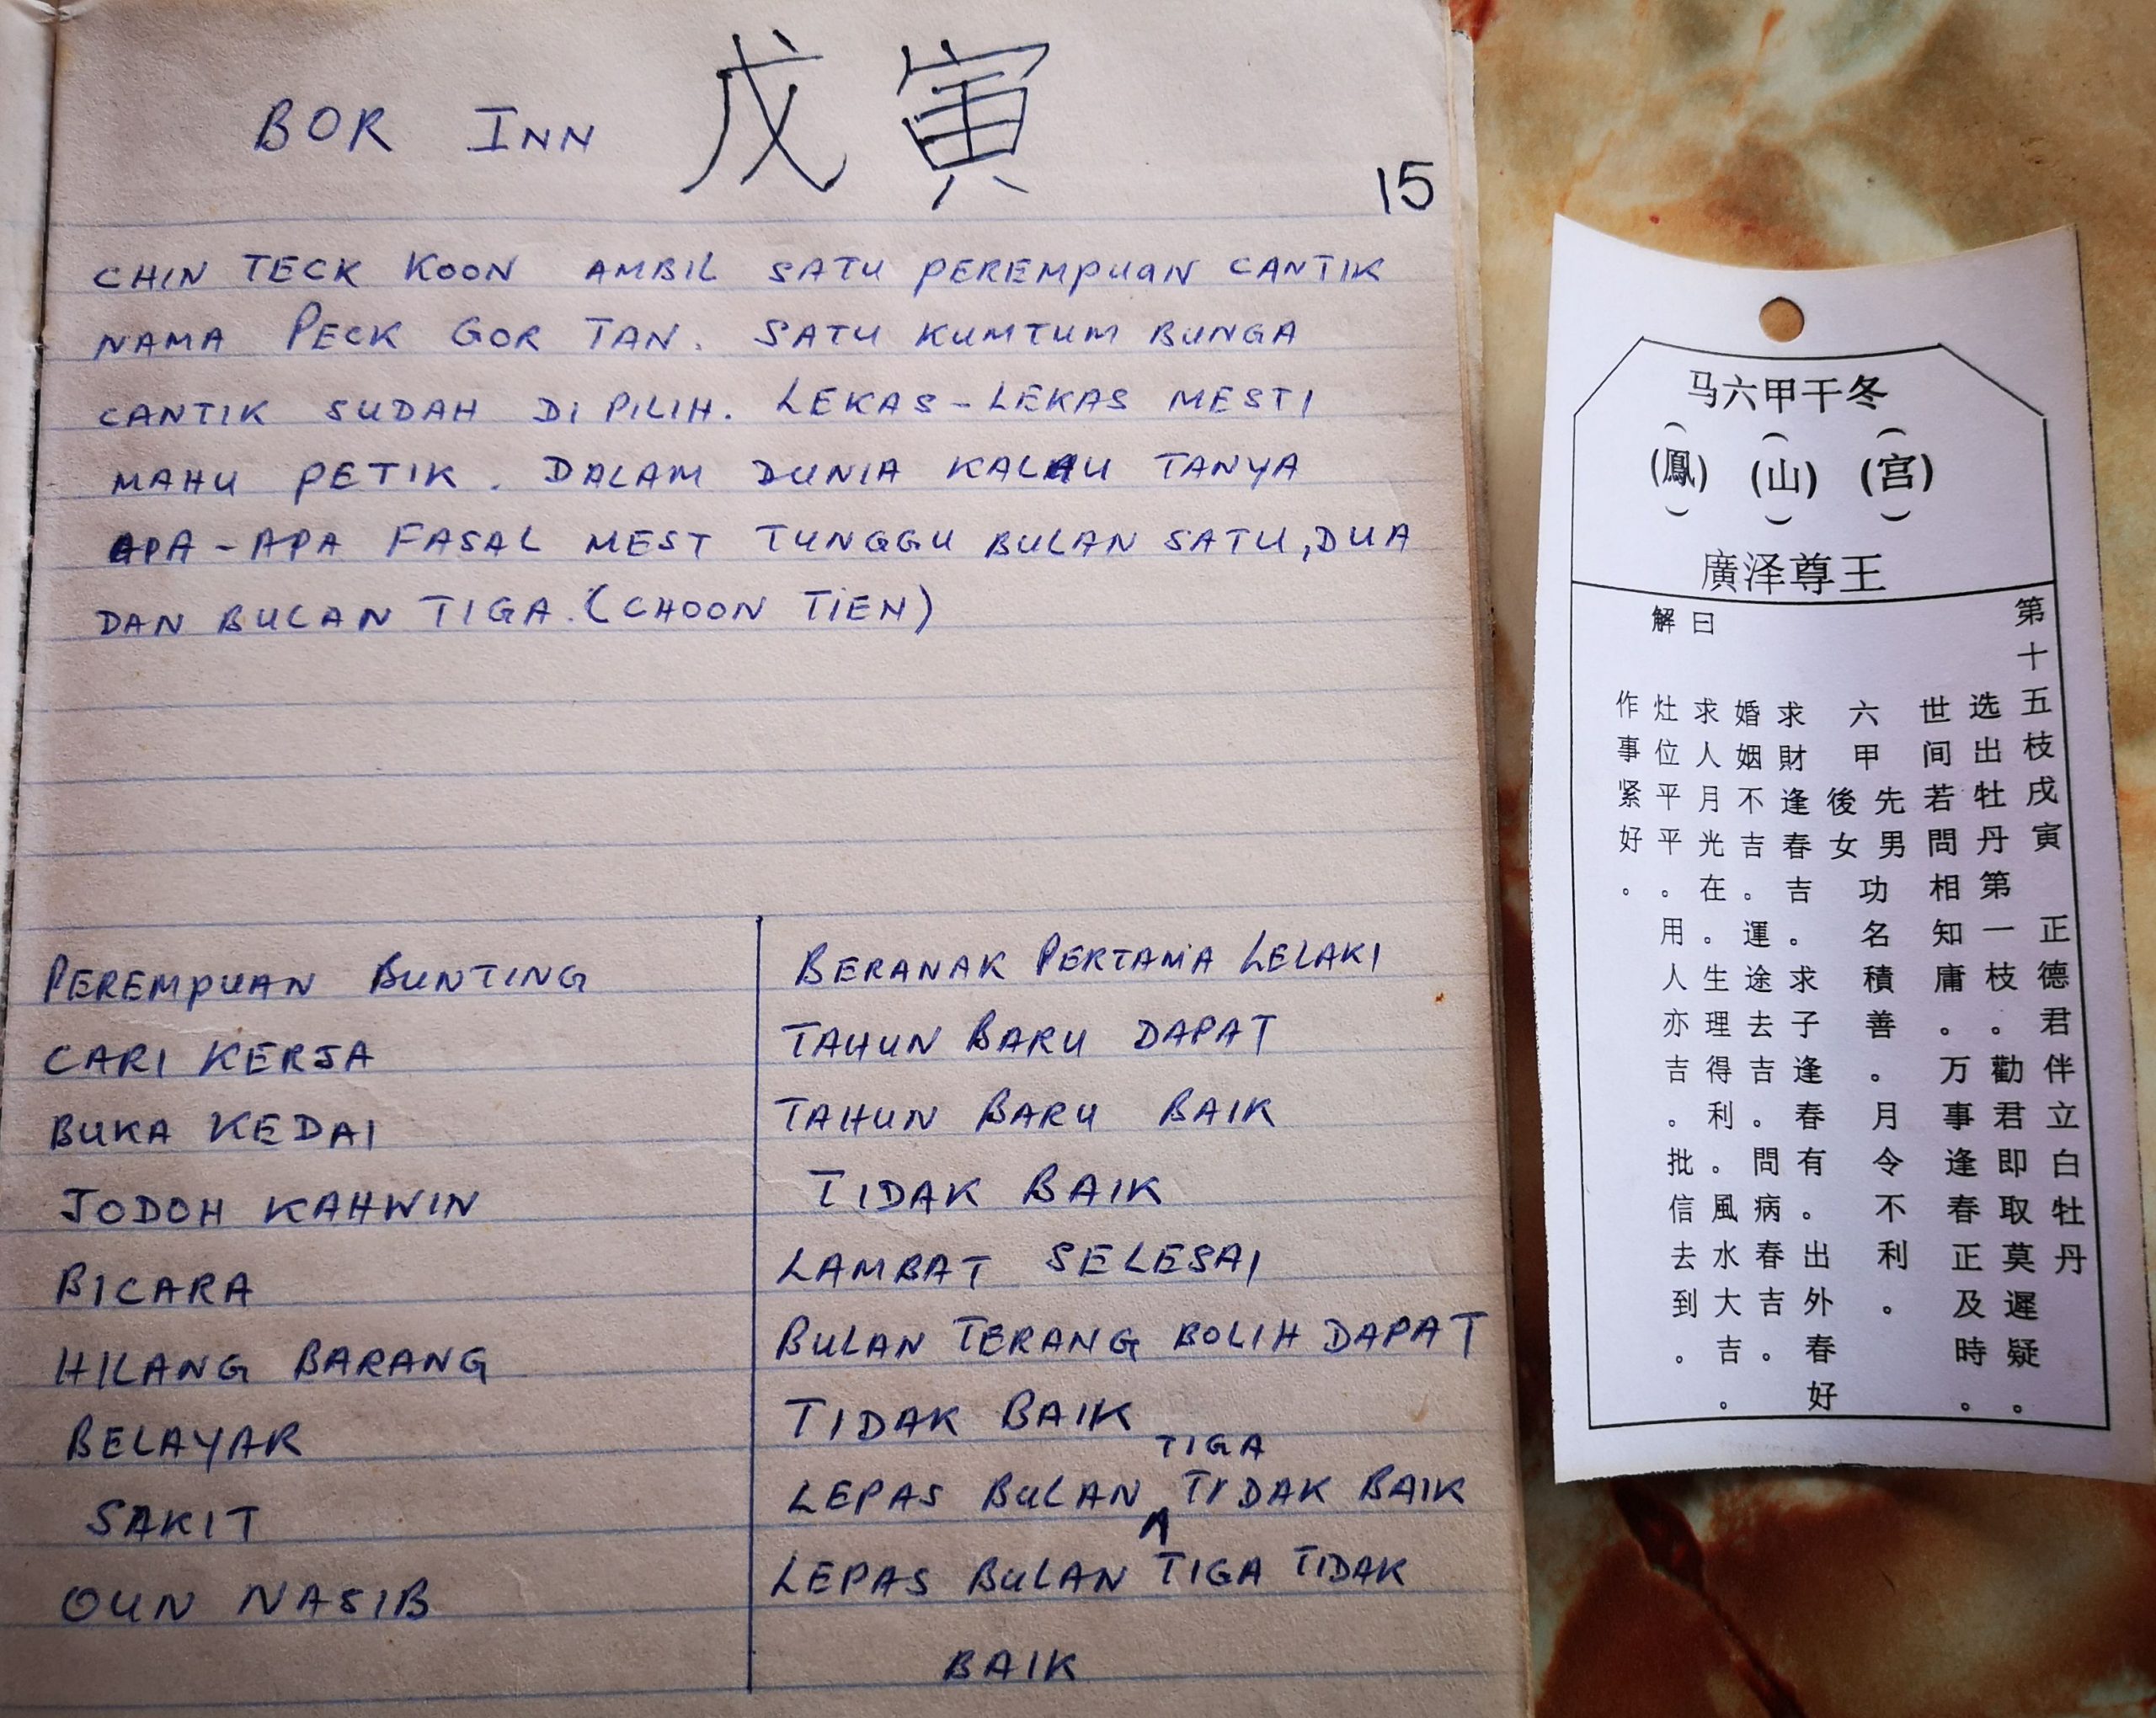 BOR INN 戊寅
15
CHIN TECK KOON AMBIL SATU PEREMPUAN CANTIK
NAMA PECK GOR TAN. SATU KUMTUM BUNGA
CANTIK SUDAH DI PILIH. LEKAS-LEKAS MESTI
MAHU PETIK. DALAM DUNIA KALAU TANYA
APA-APA FASAL MEST TUNGGU BULAN SATU, DUA
DAN BULAN TIGA. (CHOON TIEN)
PEREMPUAN BUNTING BERANAK PERTAMA LELAKI
CARI KERJA TAHUN BARU DAPAT
BUKA KEDAI TAHUN BARU BAIK
JODOH KAHWIN TIDAK BAIK
BICARA LAMBAT SELESAI
HILANG BARANG BULAN TERANG BOLIH DAPAT
BELAYAR TIDAK BAIK
SAKIT LEPAS BULAN TIGA TIDAK BAIK
OUN NASIB LEPAS BULAN TIGA TIDAK
BAIK
马六甲干冬
(鳳) (山) (宫)
廣泽尊王
第十五枝戌寅 正德君伴立白牡丹
选出牡丹第一枝。勸君即取莫遲疑。
世间若問相知庸。万事逢春正及時。
解曰
六甲先男後女 功名積善。月令不利。
求財逢春吉。求子逢春有。出外春好
婚姻不吉。運途去吉。問病春吉。
求人月光在。生理得利。風水大吉。
灶位平平。用人亦吉。批信去到。
作事紧好。